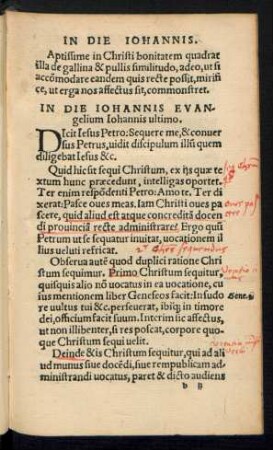 IN DIE IOHANNIS.
Aptissime in Christi bonitatem quadrat
illa de gallina & pullis similitudo, adeo, ut si
accōmodare eandem quis recte possit, mirifi
ce, ut erga nos affectus sit, commonstret.
IN DIE IOHANNIS EVAN-
gelium Iohannis ultimo.
DIcit Iesus Petro: Sequere me, & conuer
sus Petrus, uidit discipulum illū quem
diligebat Iesus &c.
Quid hic sit sequi Christum, ex ijs quæ te
xtum hunc præcedunt, intelligas oportet.
Ter enim respōdenti Petro: Amo te. Ter di
xerat: Pasce oues meas. Iam Christi oues pa
scere, quid aliud est atque concredita docen
di prouincia recte administrare? Ergo quū
Petrum ut se sequatur inuitat, uocationem il
lius ueluti refricat.
Obserua autē quod duplici ratione Christ
tum sequimur. Primo Christum sequitur,
quisquis alio nō uocatus in ea uocatione, cu
ius mentionem liber Geneseos facit: In sudo
re uultus tui &c. perseuerat, ibiq́; in timore
dei, officium facit suum. Interim sic affectus,
ut non illibenter, si res poscat, corpore quo
que Christum sequi uelit.
Gene. 3
Deinde & is Christum sequitur, qui ad ali
ud munus siue docēdi, siue rempublicam ad
ministrandi uocatus, paret & dicto audiens